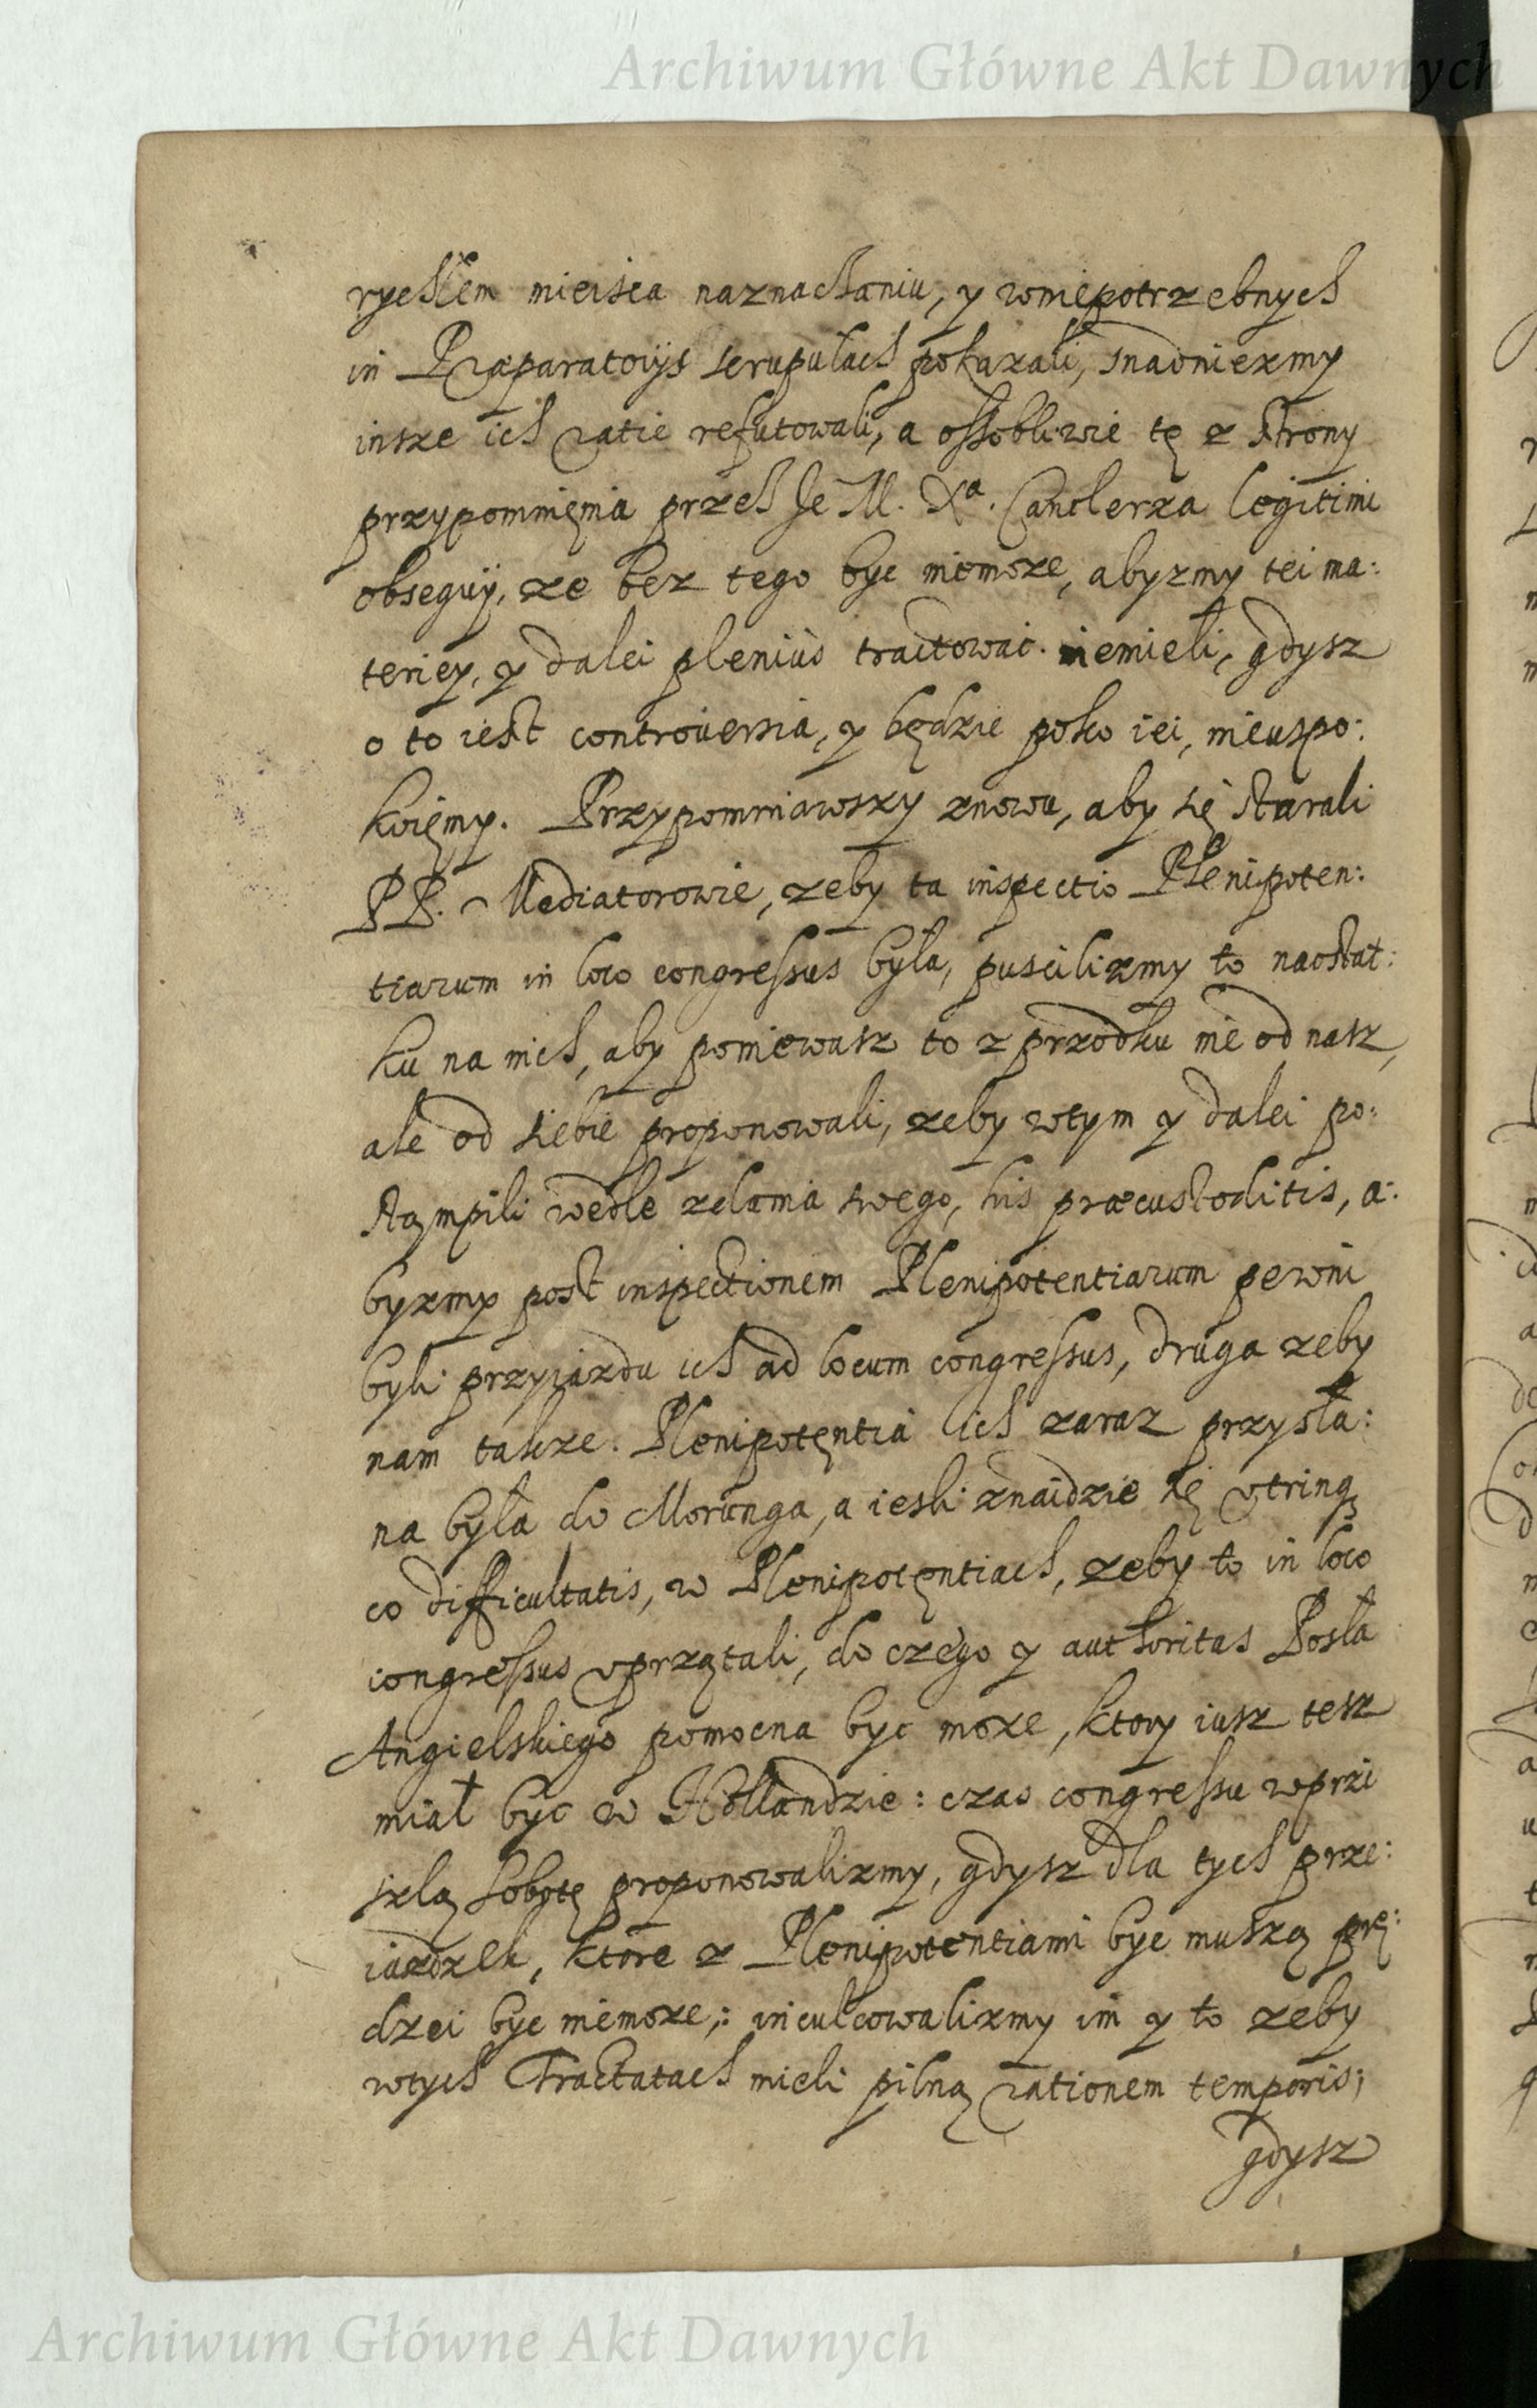 Archiwum Główne Akt Dawnych
rychlem mieisca naznachaniu, y wniepotrzebnych
in Præparatorijs scrupulach pokazali, snadniezmy
insze ich ratie refutowali, a ossobliwie tę z strony
przypomnięnia przeh Je M. Xa. Canclerza legitimi
obsequij, ze bez tego byc niemoze, abyzmy tei ma:
teriey, y dalei plenius tractowac niemieli, gdysz
o to iest controuersia, y będzie poko iei, nieuspo:
koięmy. Przypomniawszy znowu, aby się starali
PP. Mediatorowie, zeby ta inspectio Plenipoten:
tiarum in loco congressus była, puscilizmy to naostat:
ku na nich, aby poniewasz to z przodku nie od nasz,
ale od siebie proponowali, zeby wtym y dalei po:
stąmpili wedle zdania swego, his præcustoditis, a:
byzmy post inspectionem Plenipotentiarum pewni
byli przyjazdu ich ad locum congressus, druga zeby
nam takze Plenipotęntia ich zaraz przysła:
na była do Morunga, a iesli znaidzie się vtrinq
co difficultatis, w Plenipotęntiach, zeby to in loco
congressus vprzątali, do czego y authoritas Posła
Angielskiego pomocna byc moze, ktory iusz tesz
miał byc w Hollandzie: czas congressu wprzi
szlą sobotę proponowalizmy, gdysz dla tych prze:
iazdzek, ktore z Plenipotentiami byc muszą prę:
dzei byc niemoze,: inculcowalizmy im y to zeby
wtych Tractatach mieli pilną rationem temporis;
gdysz
Archiwum Główne Akt Dawnych